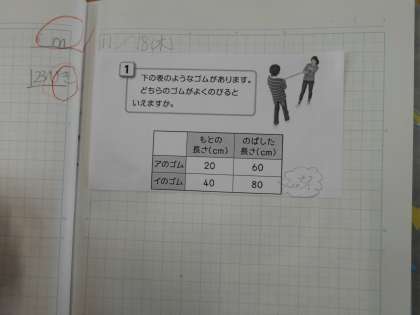 m
11/18(木)
1
下の表のようなゴムがあります。
どちらのゴムがよくのびると
いえますか。
もとの長さ(cm) のばした長さ(cm)
アのゴム 20 60
イのゴム 40 80